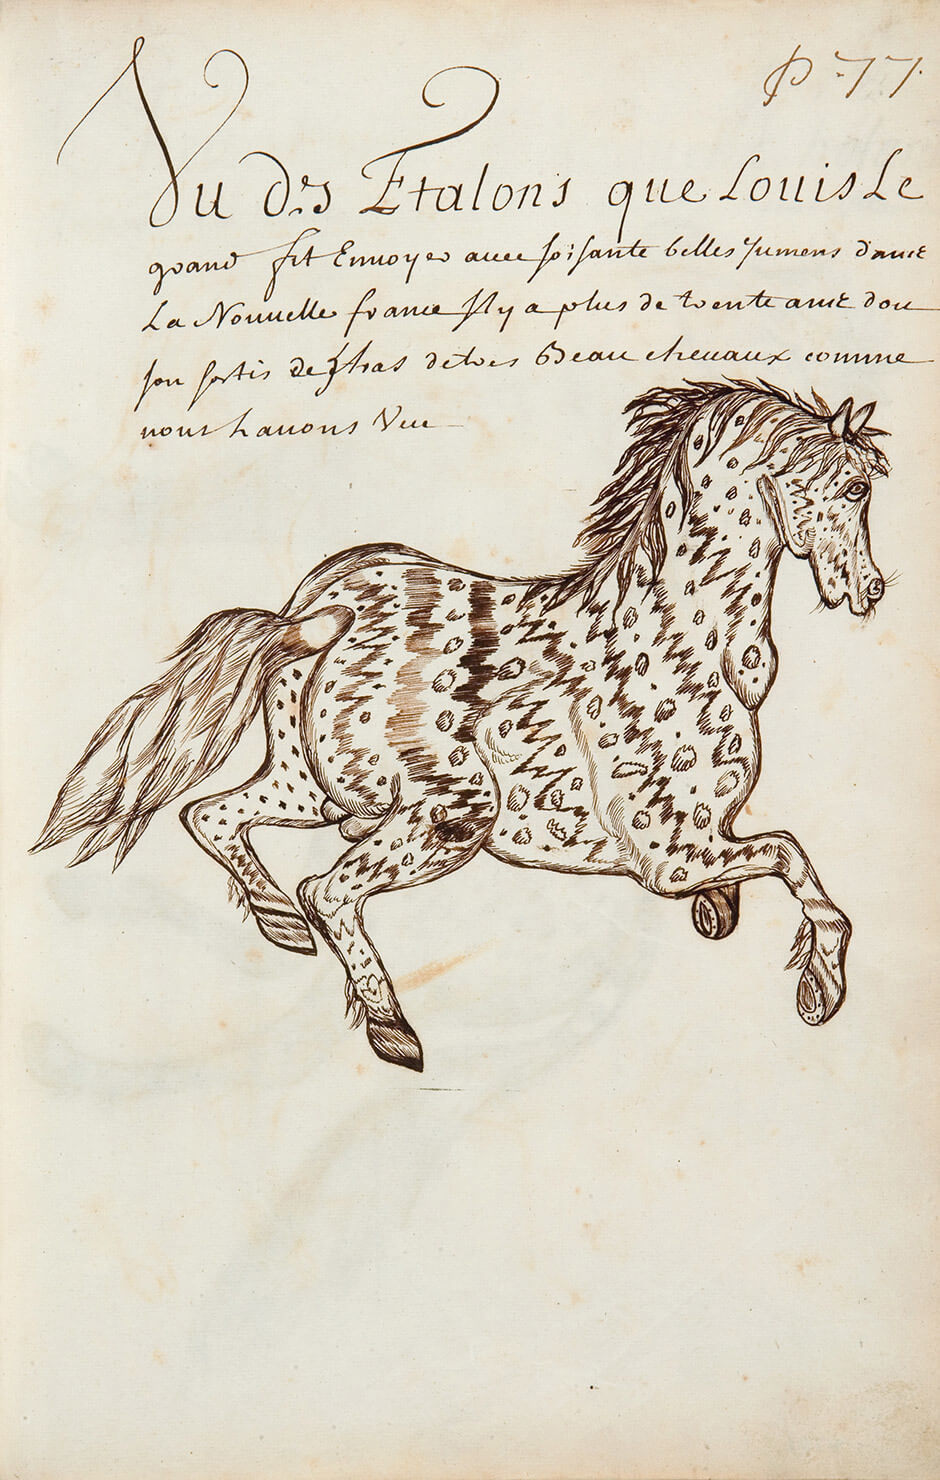 P. 77.
Vu des Etalons que Louis Le
grand fit Ennoyer auec soisante belles Jumens dans
La Nouuelle france Il y a plus de trente ans dou
son sortis de haras de tres Beau cheuaux comme
nous Lauons Veu